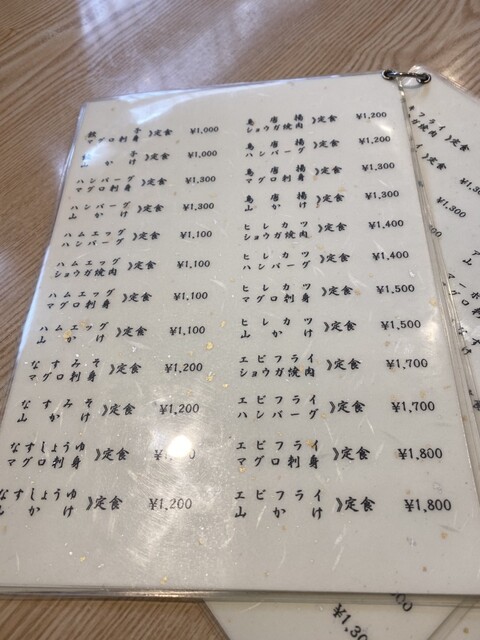 餃子
マグロ刺身 》定食 ¥1,000
子
山かけ 》定食 ¥1,000
ハンバーグ
マグロ刺身 》定食 ¥1,300
ハンバーグ
山かけ 》定食 ¥1,300
ハムエッグ
ハンバーグ 》定食 ¥1,100
ハムエッグ
ショウガ焼肉 》定食 ¥1,100
ハムエッグ
マグロ刺身 》定食 ¥1,100
ハムエッグ
山かけ 》定食 ¥1,100
なすみそ
マグロ刺身 》定食 ¥1,200
なすみそ
山かけ 》定食 ¥1,200
なすしょうゆ
マグロ刺身 》定食
なすしょうゆ
山かけ 》定食 ¥1,200
鳥唐揚
ショウガ焼肉 》定食 ¥1,200
鳥唐揚
ハンバーグ 》定食 ¥1,200
鳥唐揚
マグロ刺身 》定食 ¥1,300
鳥唐揚
山かけ 》定食 ¥1,300
ヒレカツ
ショウガ焼肉 》定食 ¥1,400
ヒレカツ
ハンバーグ 》定食 ¥1,400
ヒレカツ
マグロ刺身 》定食 ¥1,500
ヒレカツ
山かけ 》定食 ¥1,500
エビフライ
ショウガ焼肉 》定食 ¥1,700
エビフライ
ハンバーグ 》定食 ¥1,700
エビフライ
マグロ刺身 》定食 ¥1,800
エビフライ
山かけ 》定食 ¥1,800